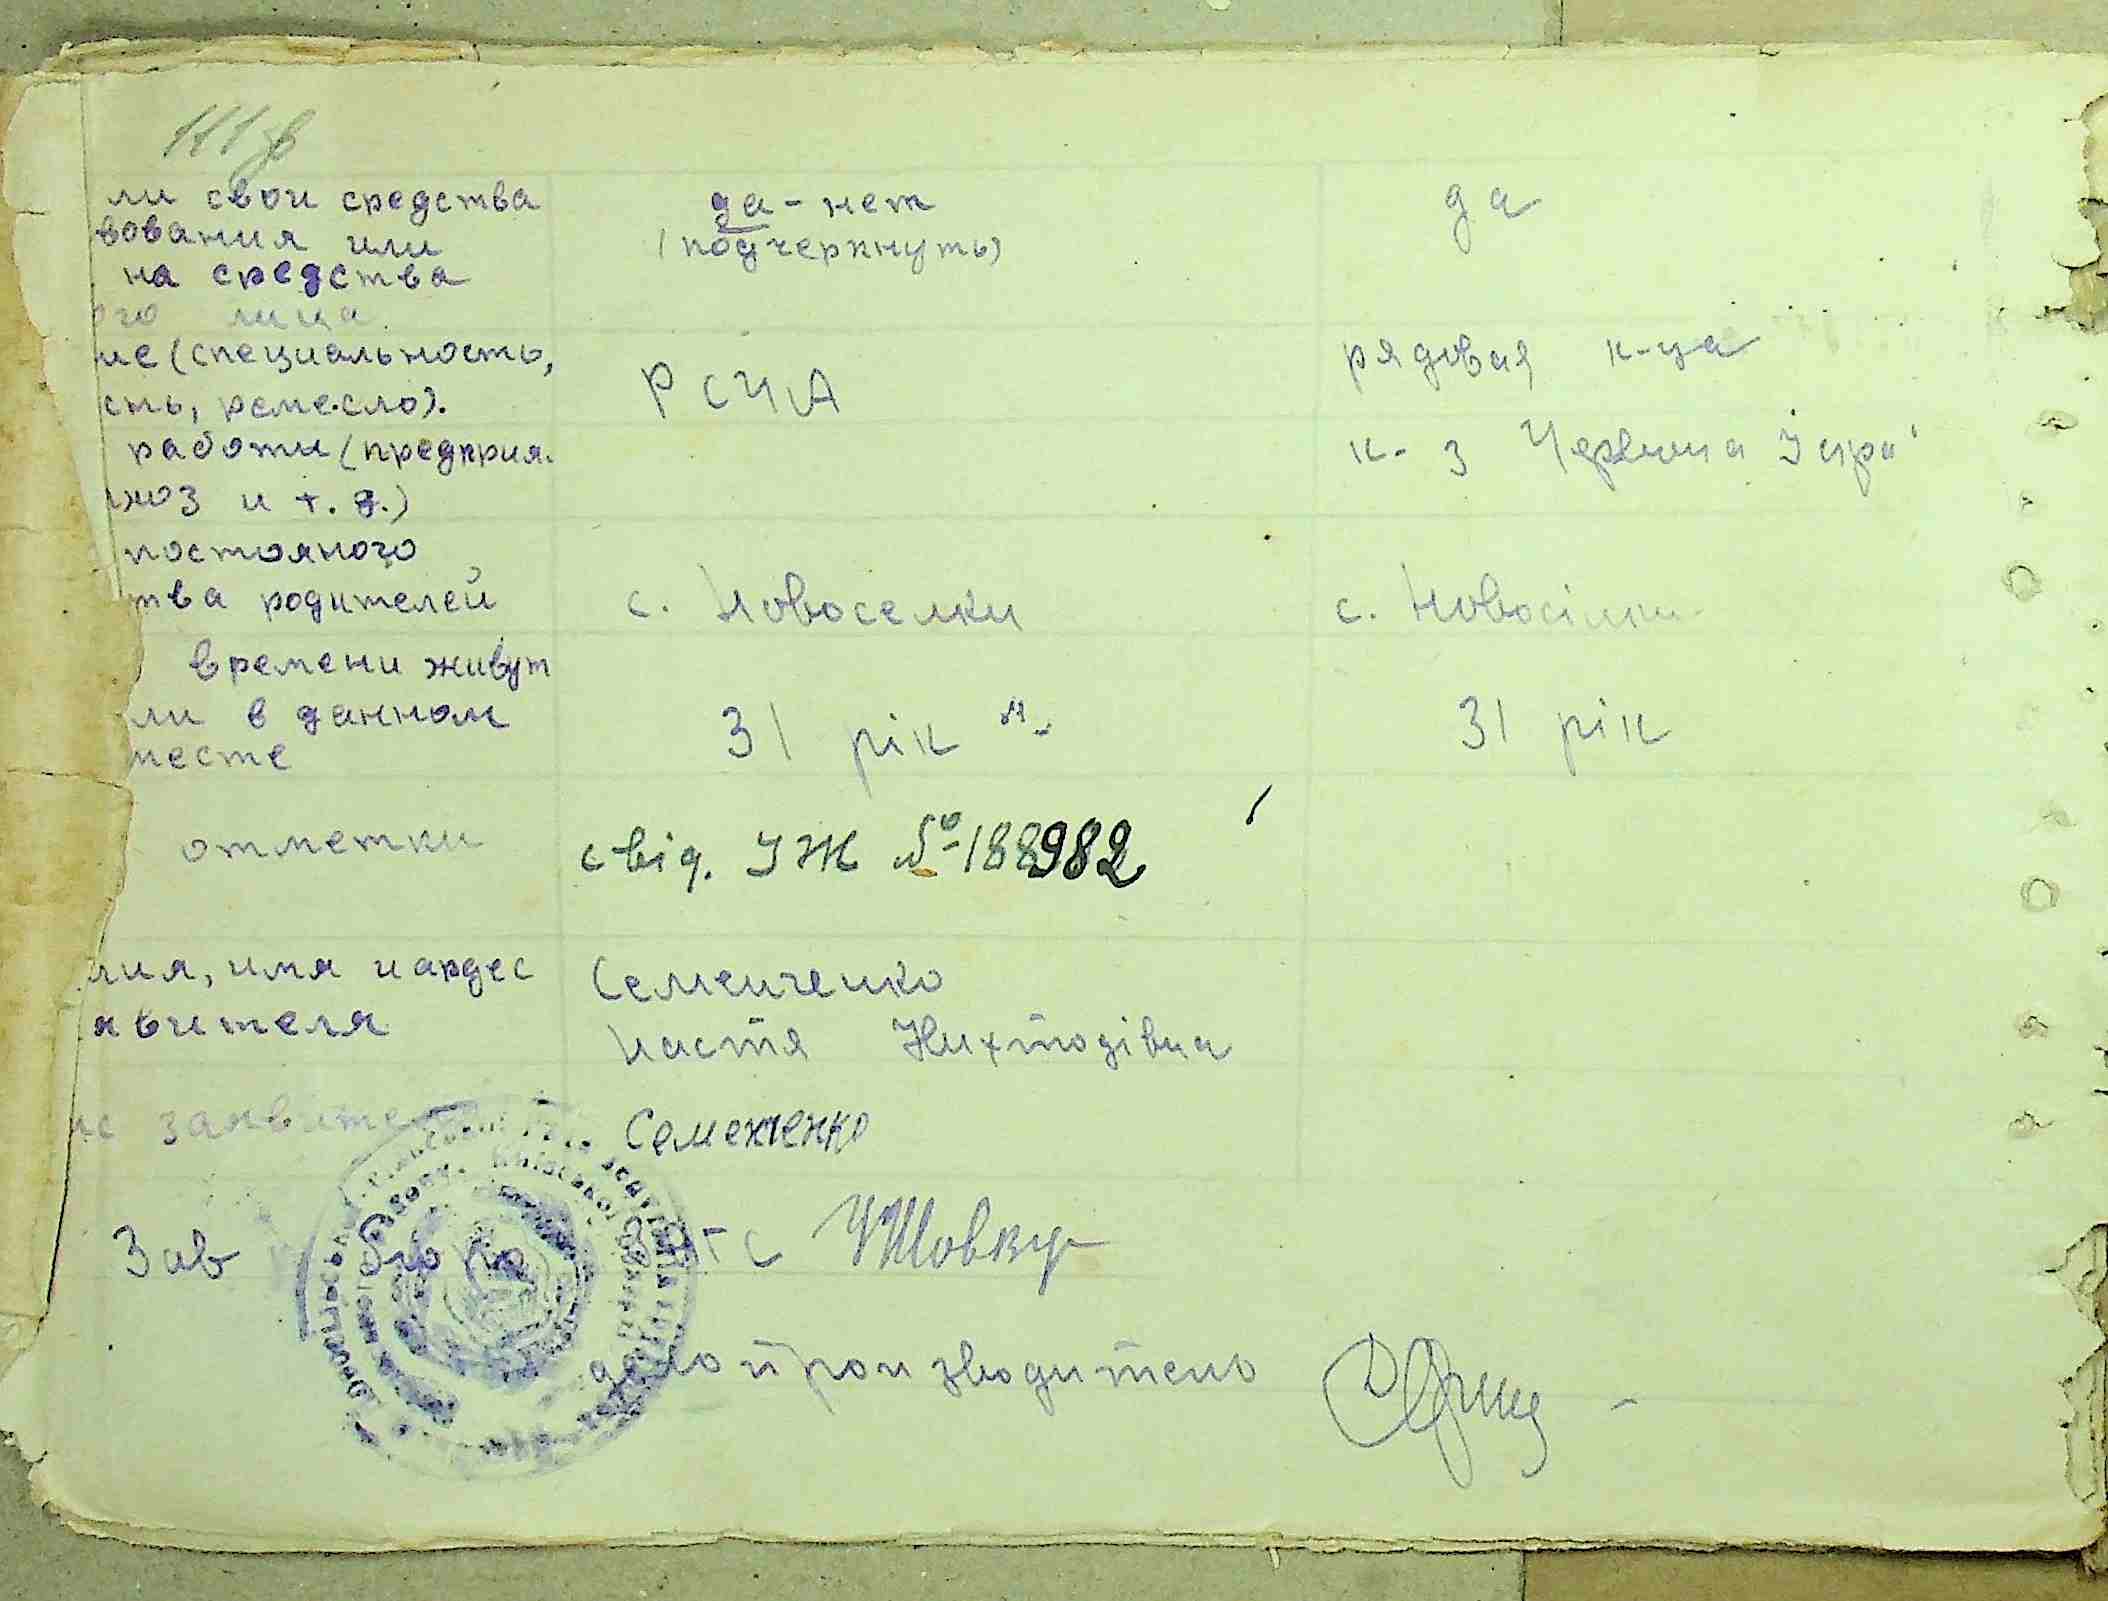 111 зв
ли свои средства
вования или
на средства
ого лица
да - нет
(подчеркнуть)
да
ие (специальность,
сть, ремесло).
РСЧА
рядовая к-ца
работы (предприя.
лхоз и т. д.)
к-з Червона Зирв
постояного
тва родителей
с. Новоселки
с. Новосілки
времени живут
ли в данном
месте
31 рік
31 рік
отметки
свід. УЖ № 188982
лия, имя и ардес
явителя
Семенченко
Настя
ис заявите
Семенченко
Зав бюро ЗАГС
делопроизводитель